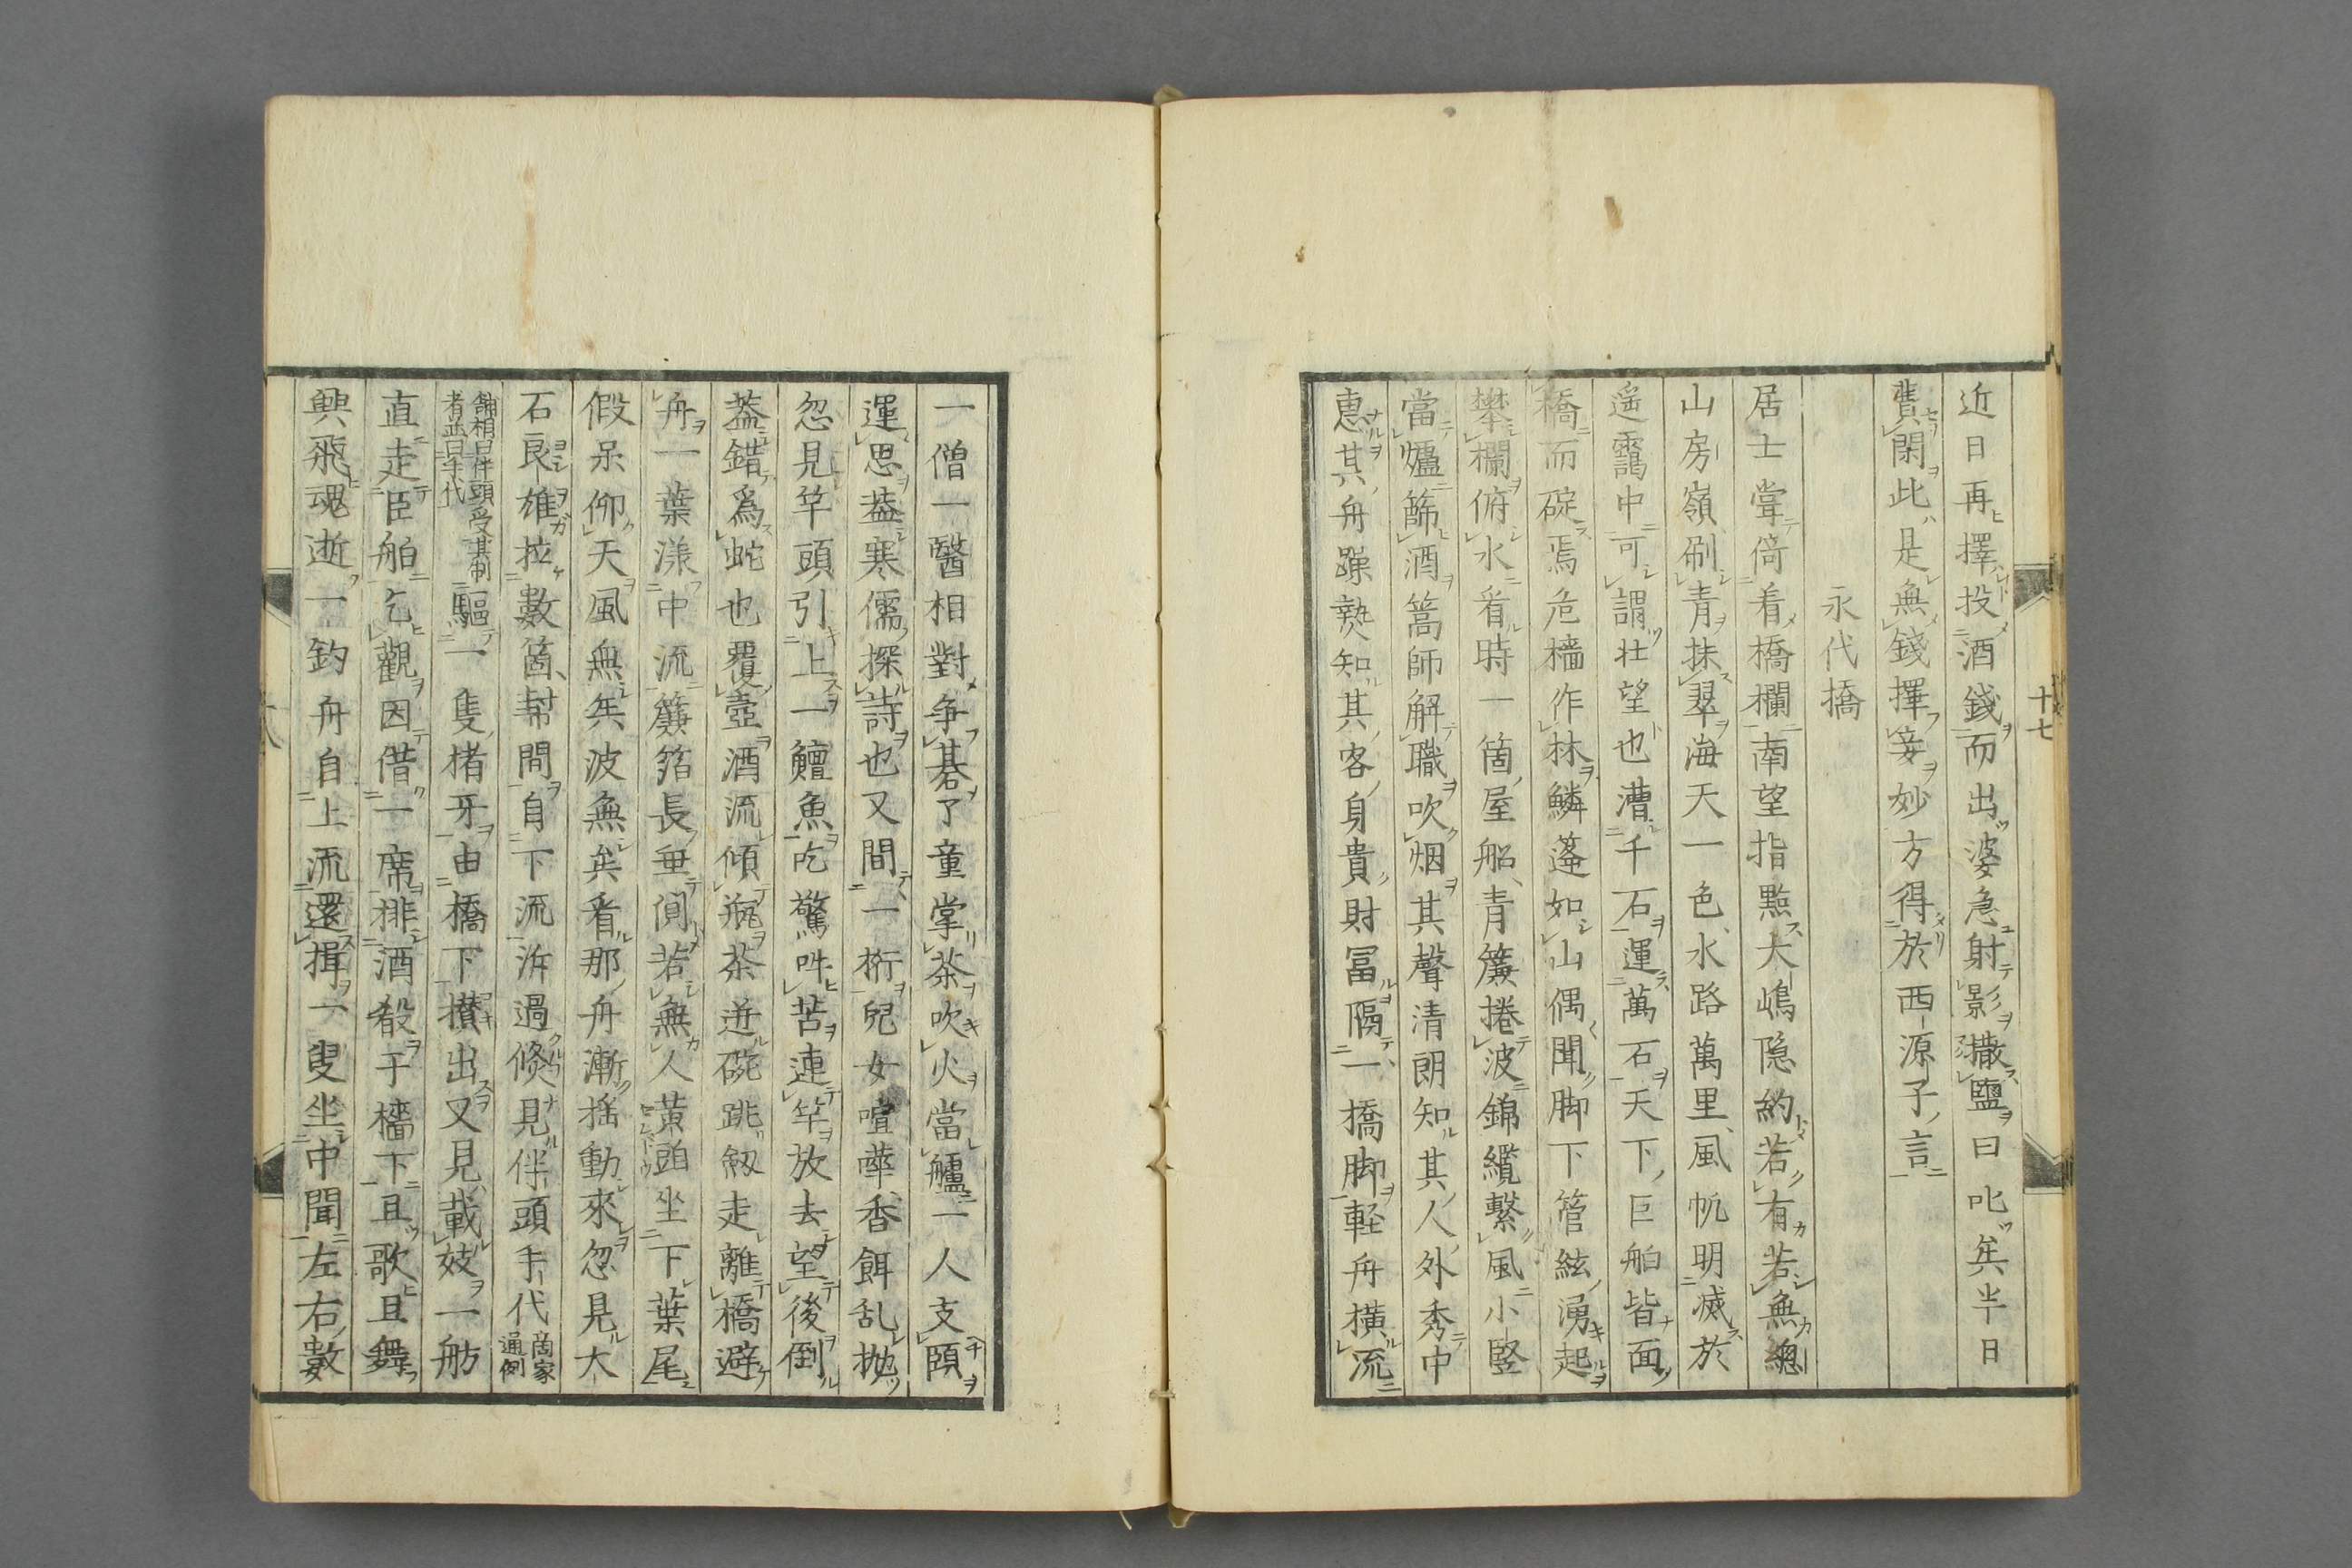 十七
近日再擇投酒錢而出婆急射影撒鹽曰叱矣半日
費閑此是無錢擇妾妙方得於西源子言
永代橋
居士嘗倚看橋欄南望指點大嶋隐約若有若無總
山房嶺刷青抹翠海天一色水路萬里風帆明滅於
遥靄中可謂壮望也漕千石運萬石天下巨舶皆面
橋而碇焉危檣作林鱗蓬如山偶聞脚下管絃湧起
攀欄俯水看時一箇屋船青簾捲波錦纜繫風小竪
當爐篩酒篙師解職吹烟其聲清朗知其人外秀中
惠其舟躁熟知其客身貴財冨隔一橋脚軽舟横流
一僧一醫相對争棊了童掌茶吹火當艫一人支頤
運思蓋寒儒探詩也又間一桁兒女喧嘩香餌乱抛
忽見竿頭引上一鱣魚吃驚吽苦連竿放去望後倒
蓋錯爲蛇也覆壺酒流傾瓶茶迸碗跳匙走離橋避
舟一葉漾中流簾箔長垂閴若無人黄頭坐下葉尾
假呆仰天風無矣波無矣看那舟漸揺動來忽見大
石良雄拉數箇幇間自下流泝過倏見伴頭手代商家通例
舗相曰伴頭受其制者並曰手代驅一隻楮牙由橋下攅出又見載妓一舫
直走臣舶乞觀因借一席排酒殽于檣下且歌且舞
興飛魂逝一釣舟自上流還揖一叟坐中聞左右數